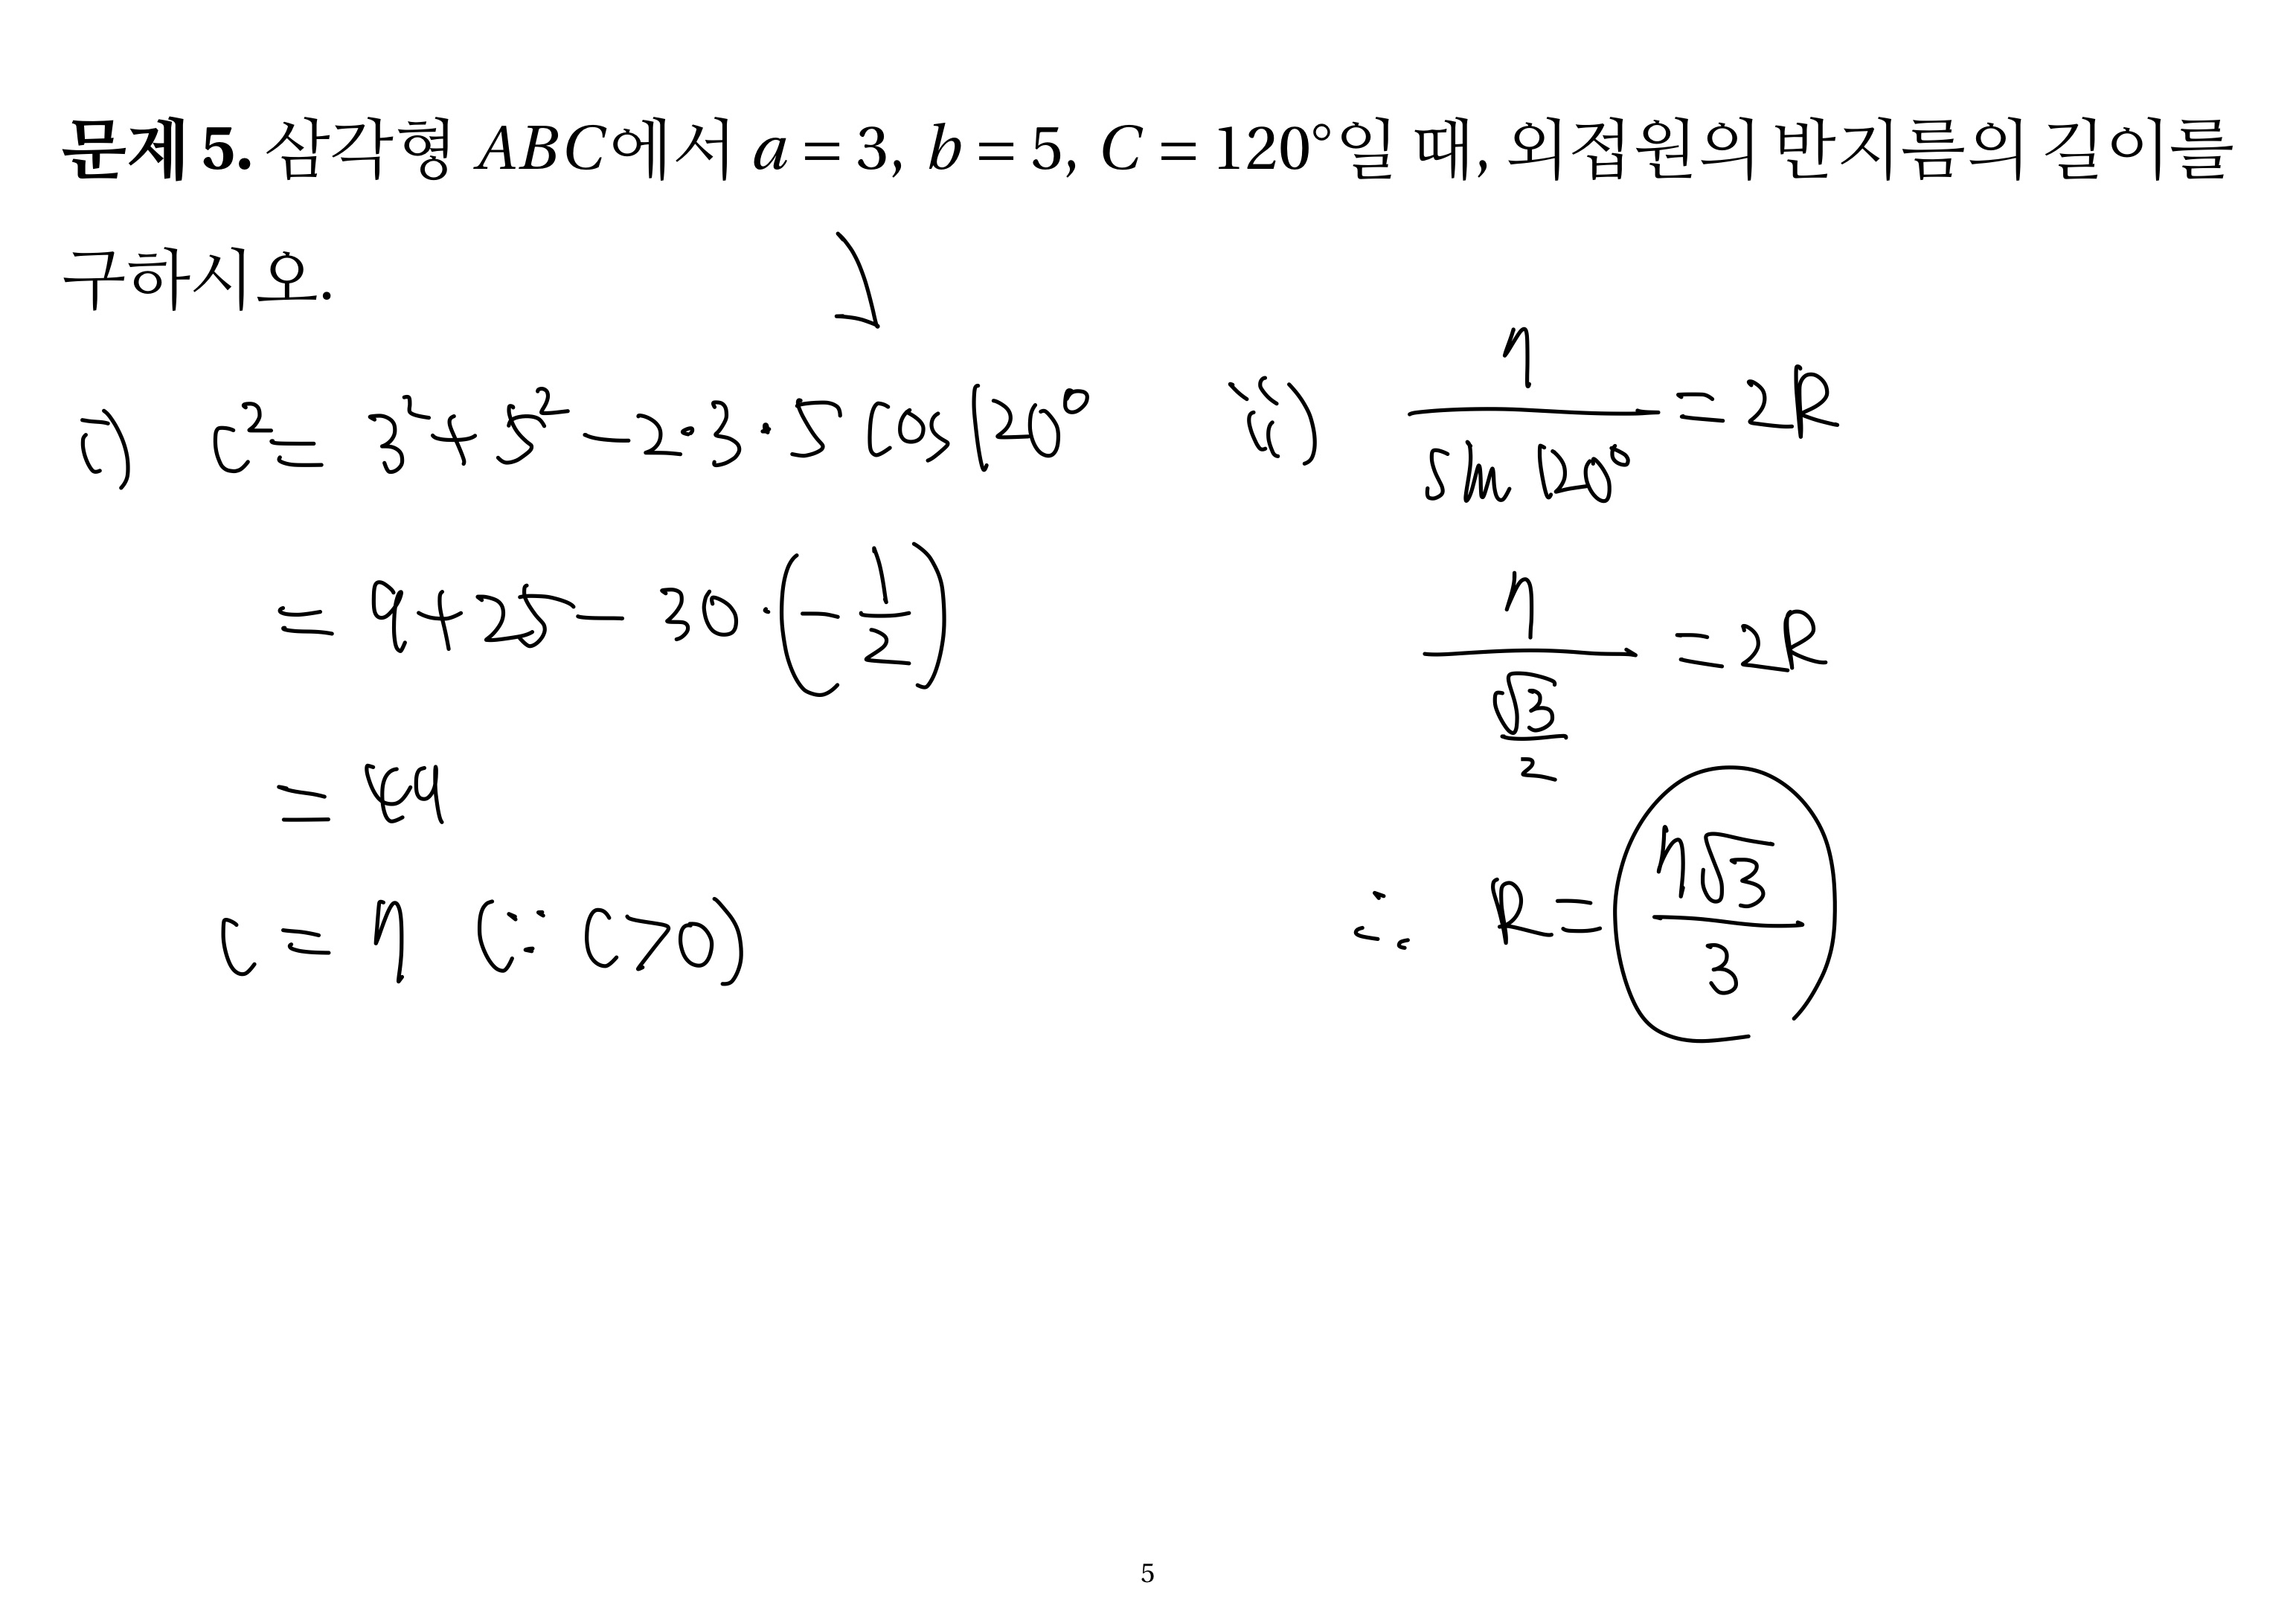 문제 5. 삼각형 ABC에서 a = 3, b = 5, C = 120°일 때, 외접원의 반지름의 길이를
구하시오.
i) c² = 3² + 5² - 2·3·5 cos 120°
= 9 + 25 - 30·(-1/2)
= 49
c = 7 (∵ c > 0)
ii) 7/sin 120° = 2R
7/(√3/2) = 2R
∴ R = 7√3/3
5